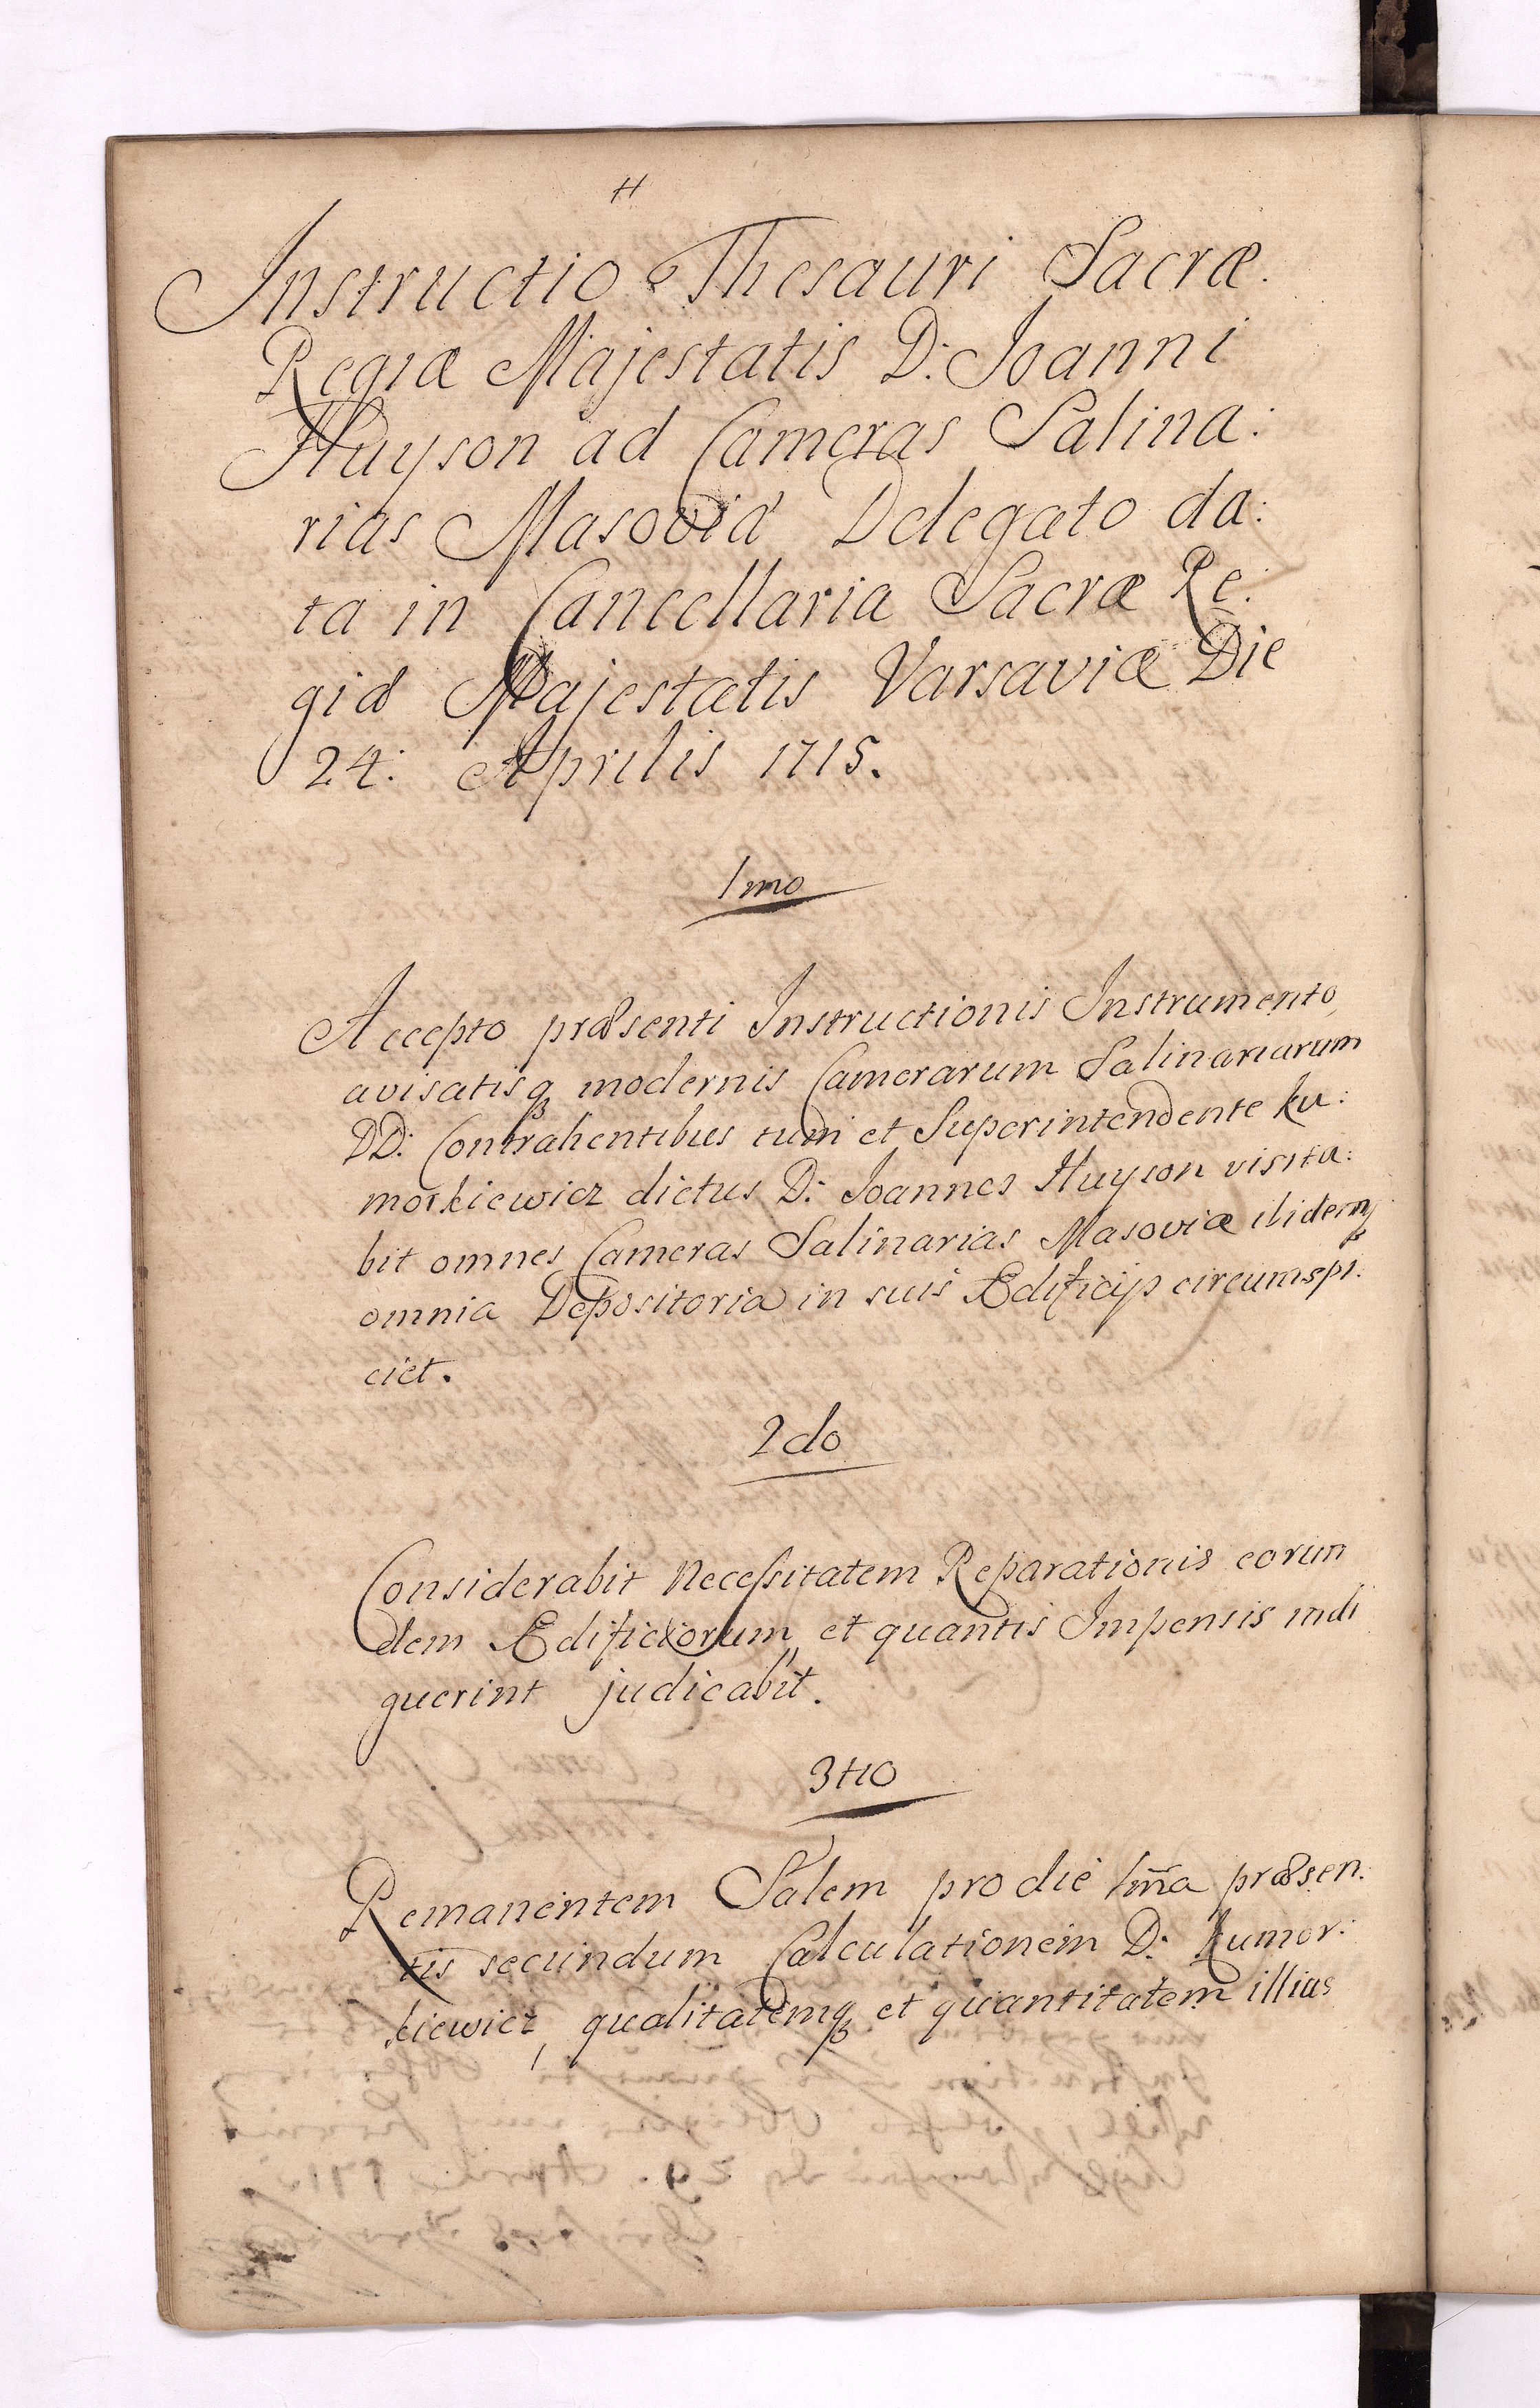 H
Instructio Thesauri Sacræ
Regiæ Majestatis D: Joanni
Huyson ad Cameras Salina:
rias Masoviæ Delegato da:
ta in Cancellaria Sacræ Re:
giæ Majestatis Varsaviæ Die
24: Aprilis 1715.
1mo
Accepto præsenti Instructionis Instrumento,
avisatisq3 modernis Camerarum Salinariarum
DD: Contrahentibus tum et Superintendente Ku:
morkiewicz dictus D: Joannes Huyson visita:
bit omnes Cameras Salinarias Masoviæ ibidemq3
omnia Depositoria in suis Ædificijs circumspi:
ciet.
2do
Considerabit Necessitatem Reparationis eorun
dem Ædificiorum, et quantis Impensis indi
guerint judicabit.
3tio
Remanentem Salem pro die 1m̃a præsen:
tis secundum Calculationem D: Kumor:
kiewicz, qualitatemq3 et quantitatem illius